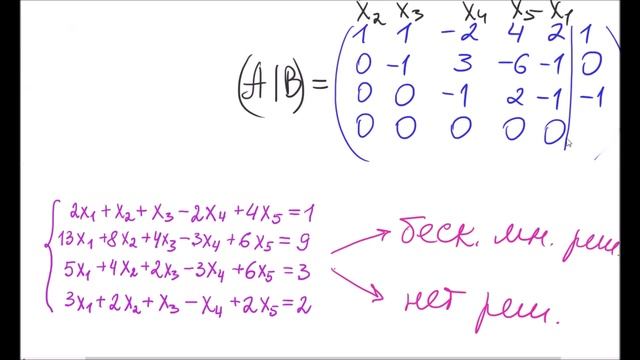 x₂ x₃ x₄ x₅ x₁
1 1 -2 4 2 | 1
0 -1 3 -6 -1 | 0
(A|B) = 0 0 -1 2 -1 | -1
0 0 0 0 0 |
2x₁ + x₂ + x₃ - 2x₄ + 4x₅ = 1
13x₁ + 8x₂ + 4x₃ - 3x₄ + 6x₅ = 9
5x₁ + 4x₂ + 2x₃ - 3x₄ + 6x₅ = 3
3x₁ + 2x₂ + x₃ - x₄ + 2x₅ = 2
беск. мн. реш.
нет реш.